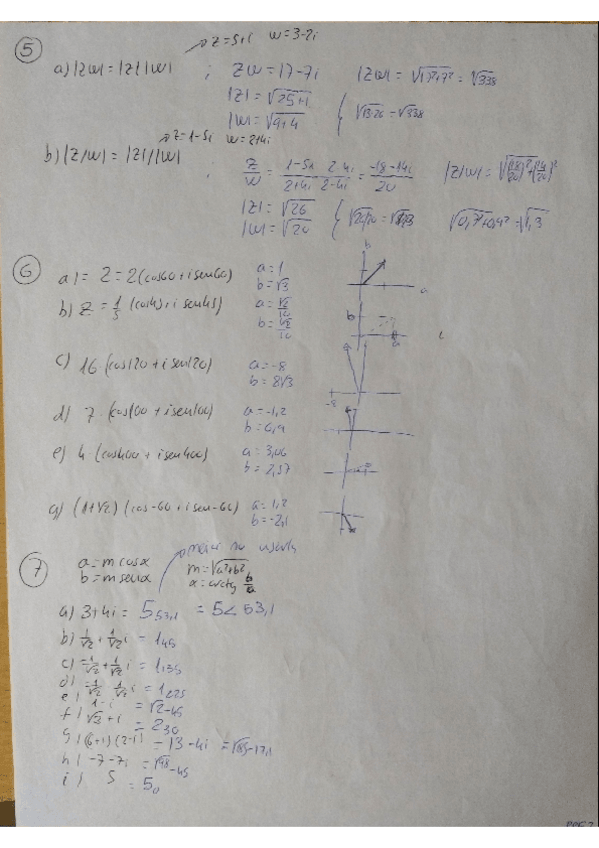 z=5+i w=3-2i
5
a) |zw|=|z||w| ; zw=17-7i |zw|=√17²+7²=√338
|z|=√25+1
|w|=√9+4 { √13·26=√338
z=1-5i w=2+4i
b) |z/w|=|z|/|w| ; z/w = 1-5i/2+4i 2-4i/2-4i = -18-14i/20
|z|=√26
|w|=√20 √0,9²+0,7²=√1,3
6
a) = z=2(cos60+i sen60) a=1
b=√3
b) z=1/5 (cos45+i sen45) a=√2/10
b=√2/10
c) 16 (cos120+i sen120) a=-8
b=8√3
d) 7 (cos100+i sen100) a=-1,2
b=6,9
e) 4 (cos400+i sen400) a=3,06
b=2,57
g) (1+√2) (cos-60+i sen-60) a=1,2
b=-2,1
7
a=m cosα m=√a²+b²
b=m senα α=arctg b/a
a) 3+4i = 5 53,1 = 5<53,1
b) 1/√2+1/√2 i = 1 45
c) -1/√2+1/√2 i = 1 135
d) -1/√2 1/√2 i = 1 225
e) 1-i = √2 -45
f) √3+i = 2 30
g) (6+i)(2-i) = 13-4i = √185 -17,1
h) -7-7i = √98 -45
i) 5 = 5 0